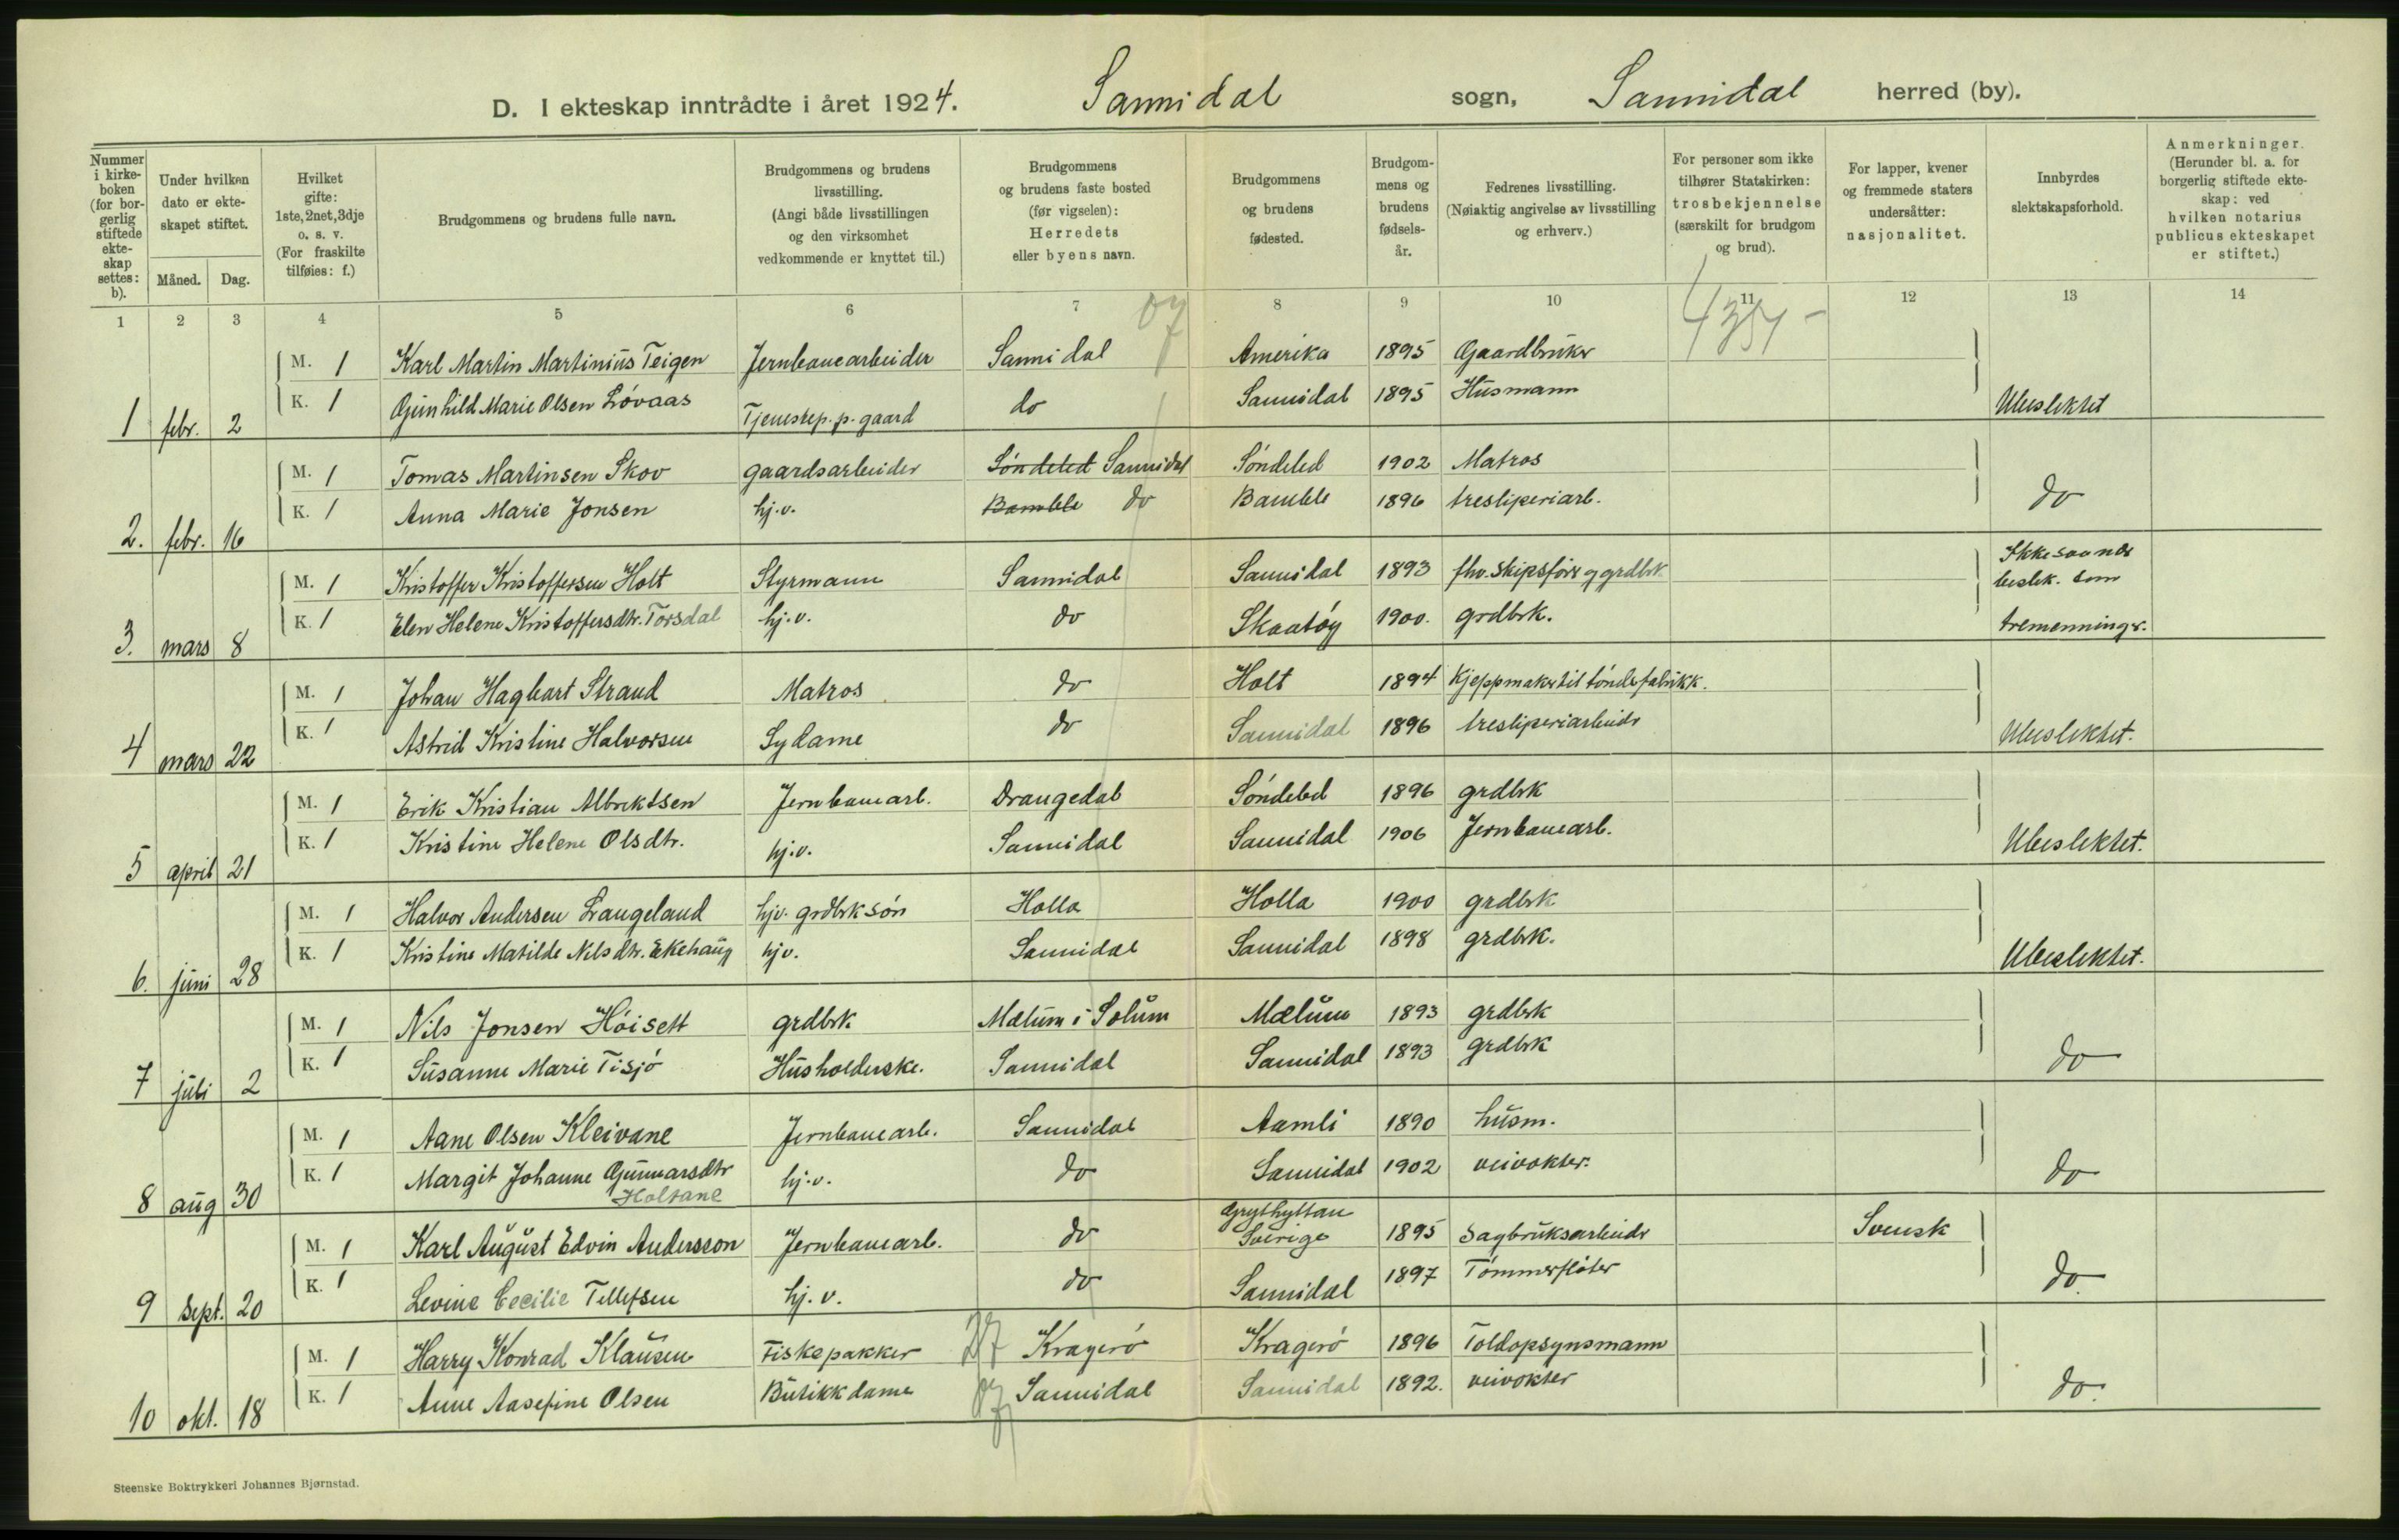 D. I ekteskap inntrådte i året 1924. Sannidal sogn, Sannidal herred (by).
Nummer i kirkeboken (for borgerlig stiftede ekteskap settes: b).
Under hvilken dato er ekteskapet stiftet.
Måned. Dag.
Hvilket gifte: 1ste, 2net, 3dje o. s. v. (For fraskilte tilføies: f.)
Brudgommens og brudens fulle navn.
Brudgommens og brudens livsstilling. (Angi både livsstillingen og den virksomhet vedkommende er knyttet til.)
Brudgommens og brudens faste bosted (før vigselen): Herredets eller byens navn.
Brudgommens og brudens fødested.
Brudgommens og brudens fødselsår.
Fedrenes livsstilling. (Nøiaktig angivelse av livsstilling og erhverv.)
For personer som ikke tilhører Statskirken: trosbekjennelse (særskilt for brudgom og brud).
For lapper, kvener og fremmede staters undersåtter: nasjonalitet.
Innbyrdes slektskapsforhold.
Anmerkninger. (Herunder bl. a. for borgerlig stiftede ekteskap: ved hvilken notarius publicus ekteskapet er stiftet.)
1 2 3 4 5 6 7 8 9 10 11 12 13 14
07
M. 1 Karl Martin Martinius Teigen Jernbanearbeider Sannidal Amerika 1895 Gaardbruker
1 febr. 2 K. 1 Gunhild Marie Olsen Lövaas Tjenestep. p. gaard do Sannidal 1895 Husmann Ubeslektet
M. 1 Tomas Martinsen Skov gaardsarbeider Söndeled Sannidal Söndeled 1902 Matros
2. febr. 16 K. 1 Anna Marie Jonsen hj.v. Bamble do Bamble 1896 tresliperiarb. do
M. 1 Kristoffer Kristoffersen Holt Styrmann Sannidal Sannidal 1893 fhv. skipsförer og grdbrk Ikke saa nær beslek. som
3. mars 8 K. 1 Elen Helene Kristoffersdtr. Torsdal hj.v. do Skaatöy 1900. grdbrk. tremenninger.
M. 1 Johan Hagbart Strand Matros do Holt 1894 Kjeppmaker til töndefabrikk.
4 mars 22 K. 1 Astrid Kristine Halvorsen Sydame do Sannidal 1896 tresliperiarbeider Ubeslektet.
M. 1 Erik Kristian Albrektsen Jernbanearb. Drangedal Söndeled 1896 grdbrk
5 april 21 K. 1 Kristine Helene Olsdtr. hj.v. Sannidal Sannidal 1906 Jernbanearb. Ubeslektet.
M. 1 Halvor Andersen Langeland hjv. grdbrk sön Holla Holla 1900 grdbrk
6. juni 28 K. 1 Kristine Matilde Nilsdtr. Ekehaug hjv. Sannidal Sannidal 1898 grdbrk. Ubeslektet.
M. 1 Nils Jonsen Höisett grdbrk Mælum i Solum Mælum 1893 grdbrk
7 juli 2 K. 1 Susanne Marie Tisjö Husholderske. Sannidal Sannidal 1893 grdbrk do
M. 1 Aane Olsen Kleivane Jernbanearb. Sannidal Aamli 1890 husm.
8 aug 30 K. 1 Margit Johanne Gunnarsdtr Holtane hj.v. do Sannidal 1902 veivokter. do
M. 1 Karl August Edvin Andersson Jernbanearb. do Grythyttan Sverige 1895 Sagbruksarbeider Svensk
9 sept. 20 K. 1 Levine Cecilie Tellefsen hj.v. do Sannidal 1897 Tömmerflöter do.
M. 1 Harry Konrad Klausen Fiskepakker Kragerö Kragerö 1896 Toldopsynsmann
10 okt. 18 K. 1 Anne Aasefine Olsen Butikkdame 07 Sannidal Sannidal 1892. veivokter do.
Steenske Boktrykkeri Johannes Bjørnstad.